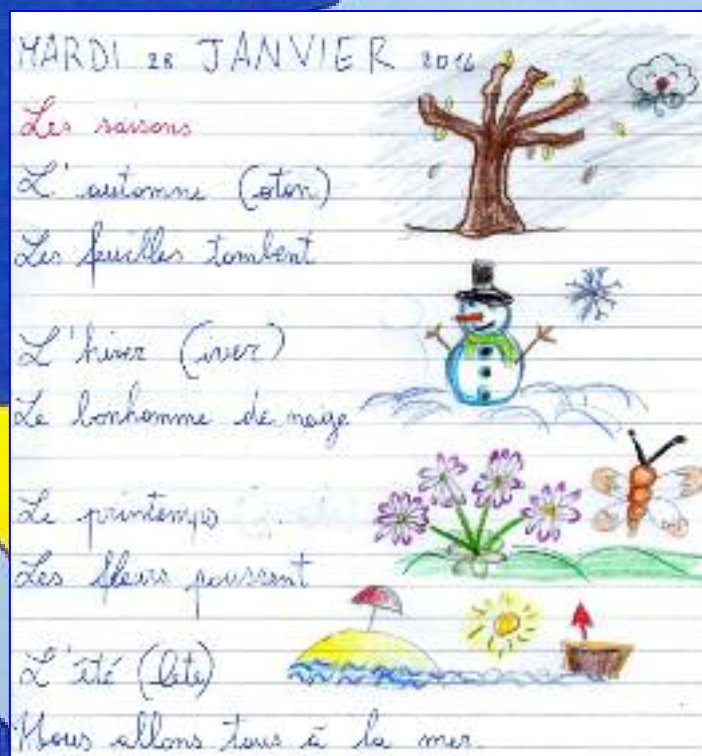 MARDI 28 JANVIER 2014
Les saisons
L'automne (oton)
Les feuilles tombent
L'hiver (iver)
Le bonhomme de neige
Le printemps
Les fleurs poussent
L'été (lete)
Nous allons tous à la mer